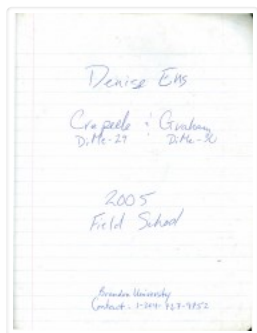 Denise Ens
Crepeele : Graham
DiMe-29 DiMe-30
2005
Field School
Brandon University
Contact: 1-204-727-9752